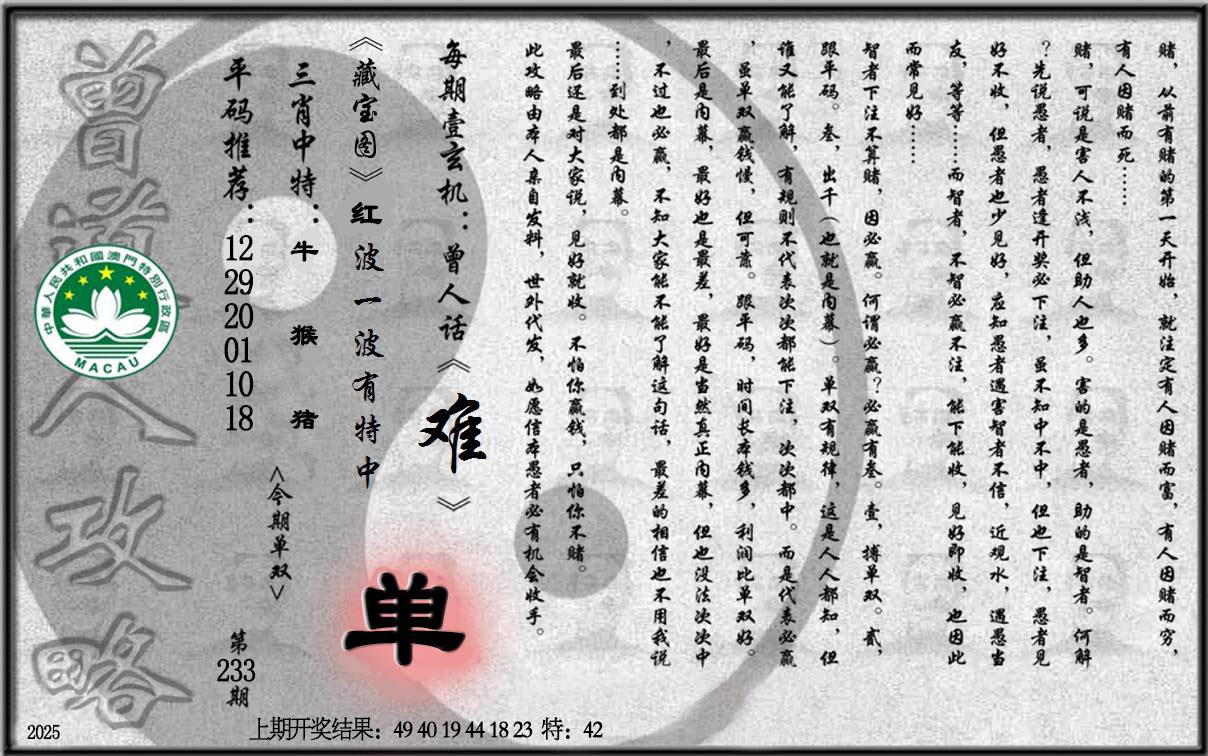 赌，从前有赌的第一天开始，就注定有人因赌而富，有人因赌而穷，
有人因赌而死……
赌，可说是害人不浅，但助人也多。害的是愚者，助的是智者。何解
？先说愚者，愚者逢开奖必下注，虽不知中不中，但也下注，愚者见
好不收，但愚者也少见好，应知愚者遇害智者不信，近观水，遇愚当
友，等等……而智者，不智必赢不注，能下能收，见好即收，也因此
而常见好……
智者下注不算赌，因必赢。何谓必赢？必赢有叁。壹，搏单双。贰，
跟平码。叁，出千（也就是内幕）。单双有规律，这是人人都知，但
谁又能了解，有规则不代表次次都能下注，次次都中。而是代表必赢
，虽单双赢钱慢，但可靠。跟平码，时间长本钱多，利润比单双好。
最后是内幕，最好也是最差，最好是当然真正内幕，但也没法次次中
，不过也必赢，不知大家能不能了解这句话，最差的相信也不用我说
……到处都是内幕。
最后还是对大家说，见好就收。不怕你赢钱，只怕你不赌。
此攻略由本人亲自发料，世外代发，如愿信本愚者必有机会收手。
每期壹玄机：曾人话《难》
《藏宝图》红波一波有特中
单
三肖中特：牛 猴 猪
<今期单双>
平码推荐：12 29 20 01 10 18
第233期
曾道人攻略
中華人民共和國澳門特別行政區
MACAU
2025
上期开奖结果：49 40 19 44 18 23 特：42